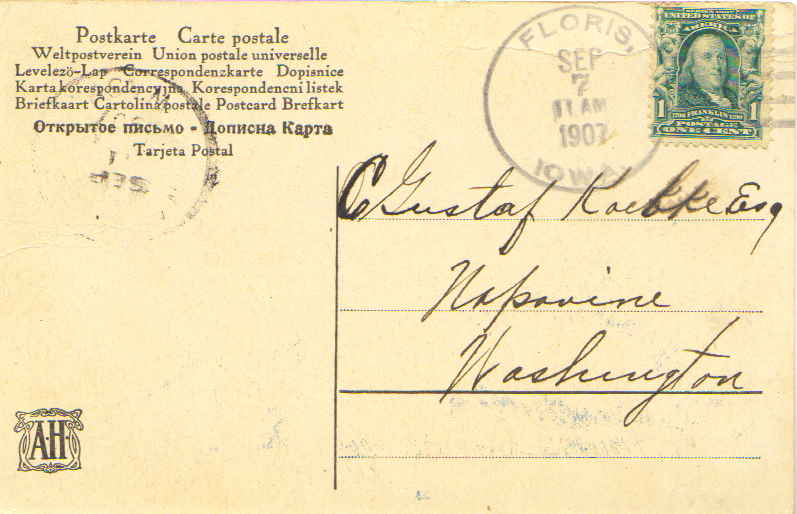 Postkarte Carte postale
Weltpostverein Union postale universelle
Levelező-Lap Correspondenzkarte Dopisnice
Karta korespondencyjna Korespondencni listek
Briefkaart Cartolina postale Postcard Brefkart
Открытое письмо - Дописна Карта
Tarjeta Postal
FLORIS,
SEP
7
11 AM
1907
IOWA
UNITED STATES OF
AMERICA
1 1
FRANKLIN
POSTAGE
ONE CENT
SEP
Gustaf Koebke Esq
Napavine
Washington
A·H